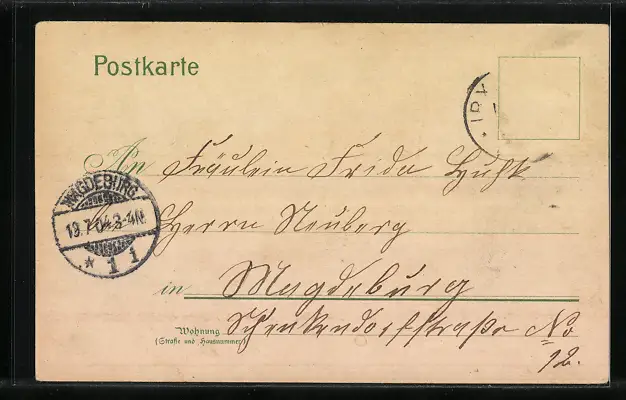 Postkarte
IRX
An Fräulein Frida
MAGDEBURG
19.7.04.3-4N.
* 1 1
Herrn Neuberg
in Magdeburg
Wohnung Schenkendorfstraße No
(Straße und Hausnummer)
12.